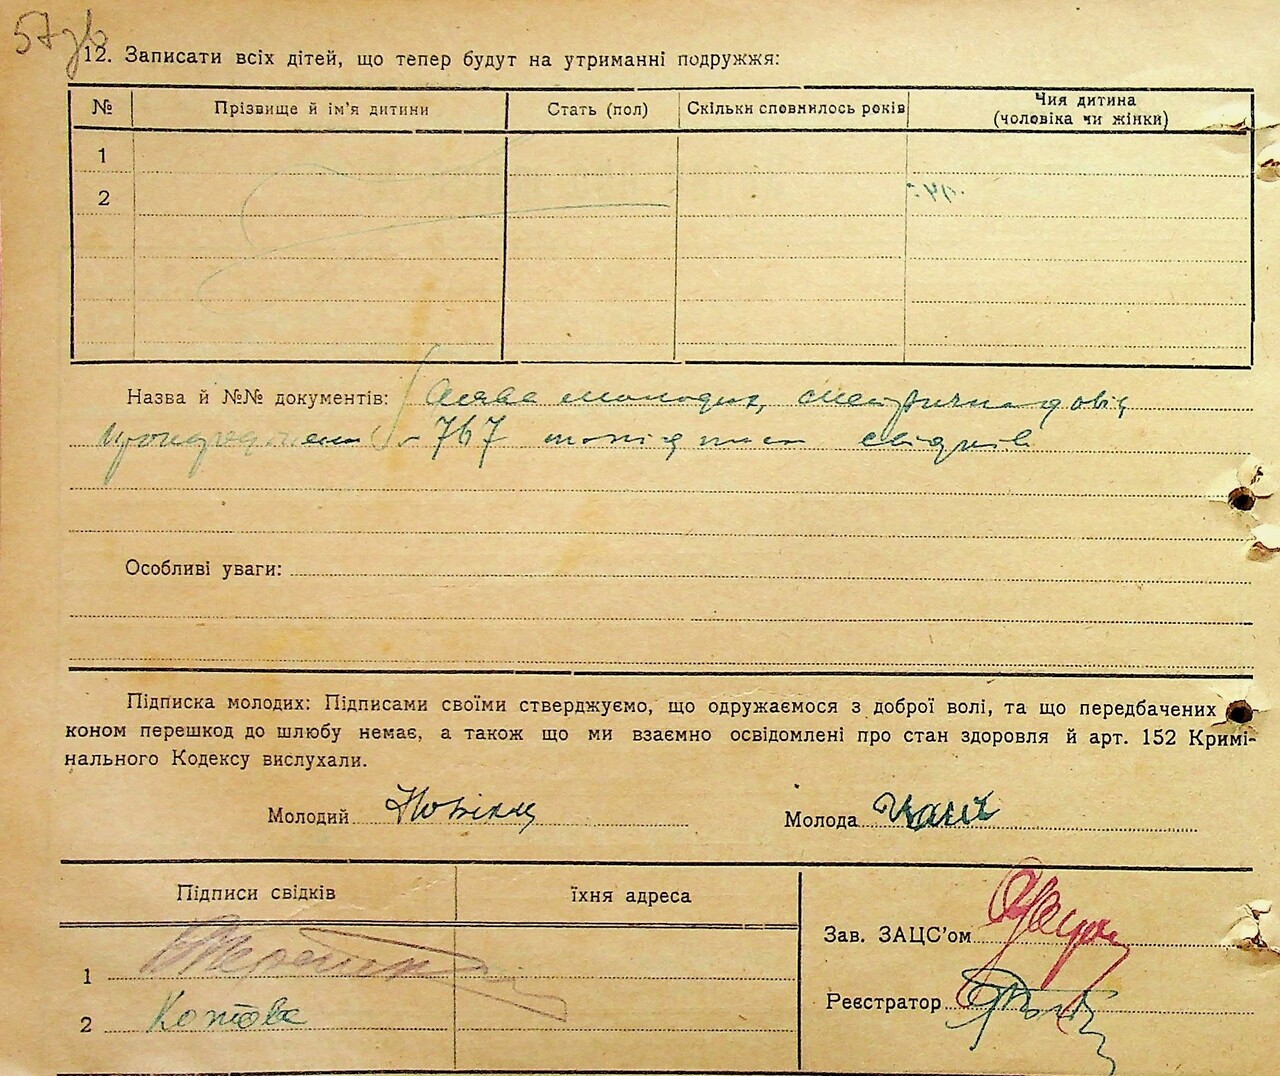 57 зв
12. Записати всіх дітей, що тепер будут на утриманні подружжя:
№ Прізвище й ім'я дитини Стать (пол) Скільки сповнилось років Чия дитина
(чоловіка чи жінки)
1
2
Назва й №№ документів: Заява молодих, метрична довід
767 підписи свідків
Особливі уваги:
Підписка молодих: Підписами своїми стверджуємо, що одружаємося з доброї волі, та що передбачених
коном перешкод до шлюбу немає, а також що ми взаємно освідомлені про стан здоровля й арт. 152 Кримі-
нального Кодексу вислухали.
Молодий Молода
Підписи свідків їхня адреса
Зав. ЗАЦС'ом
1
Реєстратор
2 Котова